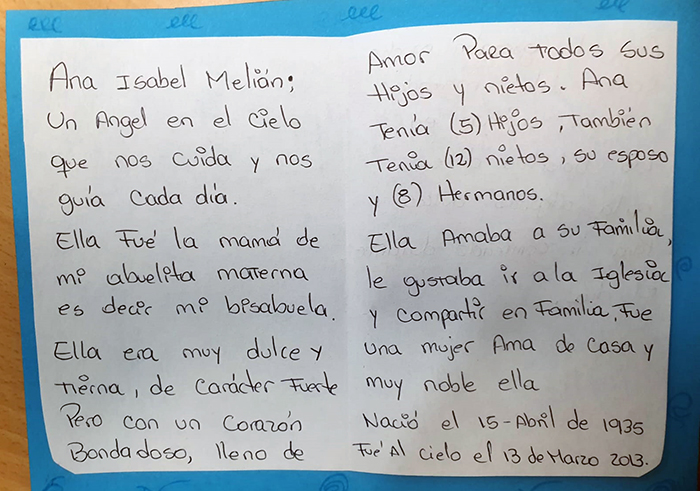 Ana Isabel Melián;
Un Angel en el Cielo
que nos cuida y nos
guía Cada día.
Ella Fué la mamá de
mi abuelita materna
es decir mi bisabuela.
Ella era muy dulce y
tierna, de Carácter Fuerte
Pero con un Corazón
Bondadoso, lleno de
Amor Para todos Sus
Hijos y nietos. Ana
Tenía (5) Hijos, También
Tenia (12) nietos, su esposo
y (8) Hermanos.
Ella Amaba a su Familia,
le gustaba ir a la Iglesia
y compartir en Familia, Fue
una mujer Ama de Casa y
muy noble ella
Nació el 15-Abril de 1935
Fué Al cielo el 13 de Marzo 2013.